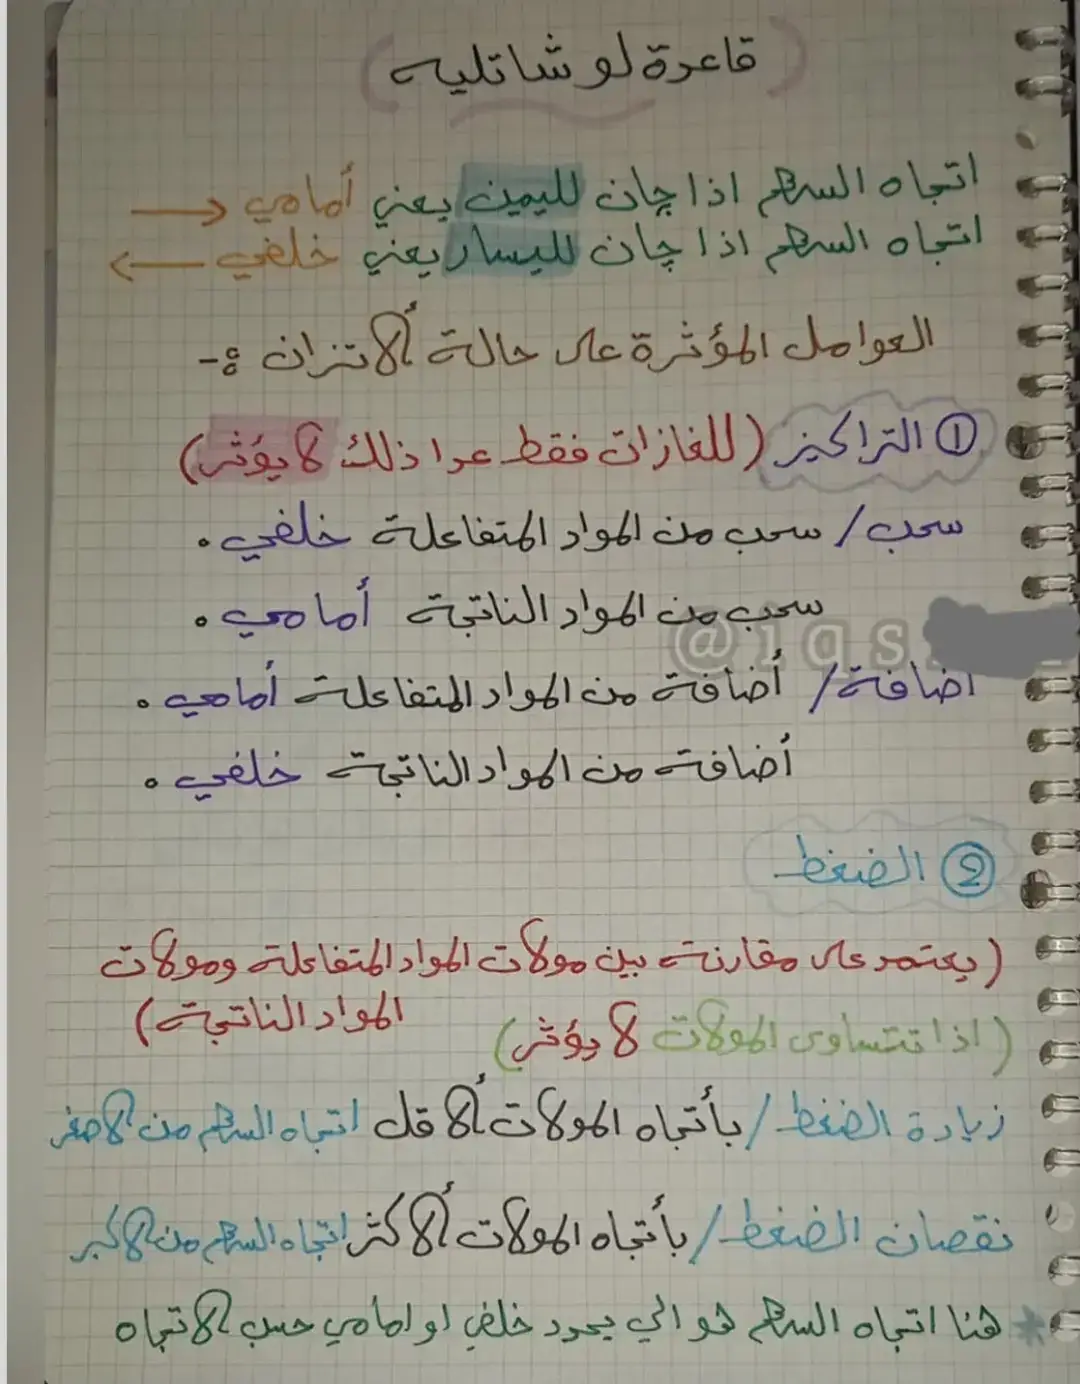 (قاعدة لو شاتليه)
اتجاه السهم اذا چان لليمين يعني أمامي →
اتجاه السهم اذا چان لليسار يعني خلفي ←
العوامل المؤثرة على حالة ألاتزان :-
① التراكيز (للغازات فقط عدا ذلك لا يؤثر)
سحب / سحب من المواد المتفاعلة خلفي .
سحب من المواد الناتجة أمامي .
@iqs
اضافة / أضافة من المواد المتفاعلة أمامي .
أضافة من المواد الناتجة خلفي .
② الضغط
(يعتمد على مقارنة بين مولات المواد المتفاعلة ومولات
المواد الناتجة)
(اذا تتساوى المولات لا يؤثر)
زيادة الضغط / بأتجاه المولات ألاقل اتجاه السهم من الاصغر
نقصان الضغط / بأتجاه المولات ألاكثر اتجاه السهم من الاكبر
* هنا اتجاه السهم هو الي يحدد خلفي او امامي حسب الاتجاه